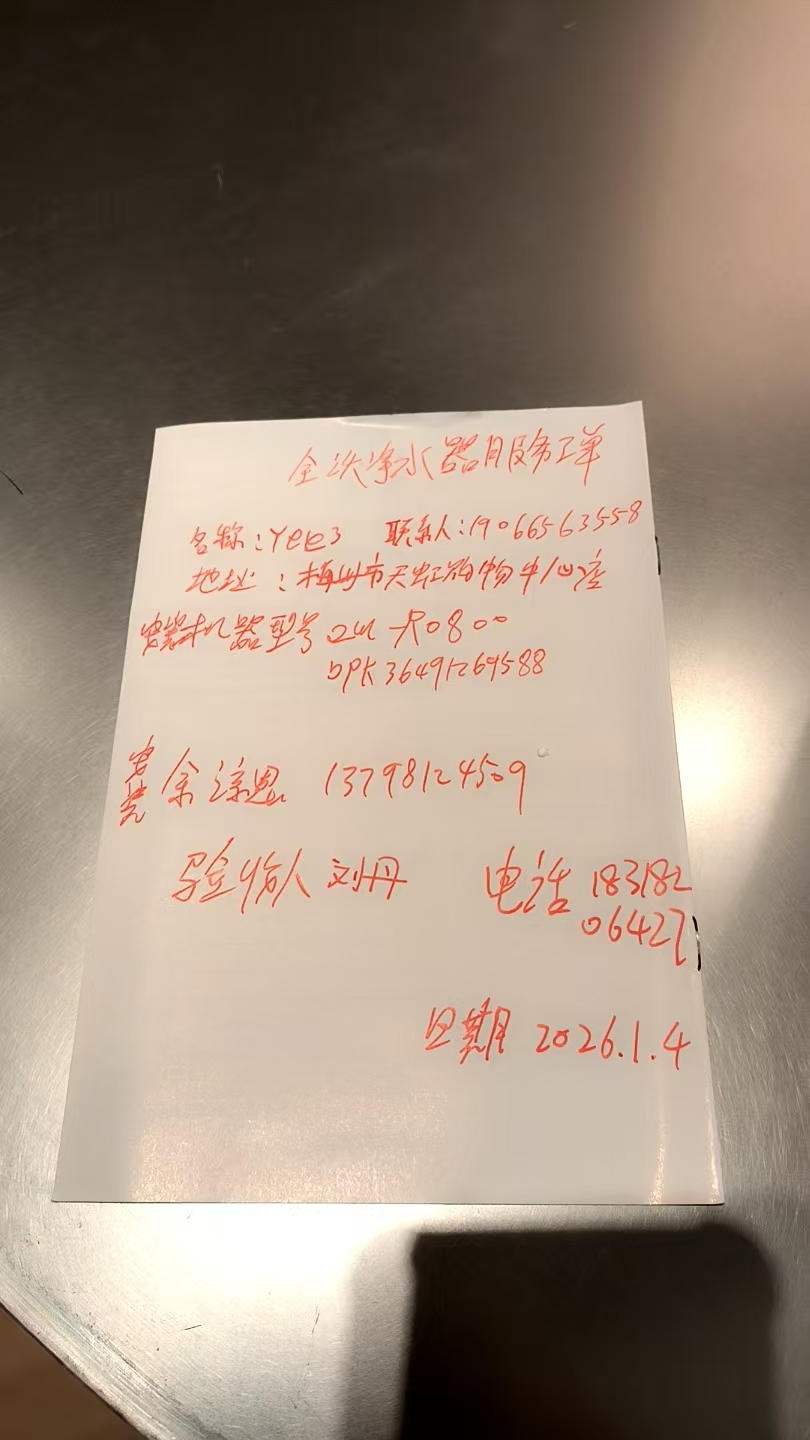 全沃净水器服务工单
名称:Yee3 联系人:19066563558
地址:梅州市天虹购物中心店
安装机器型号 RO800
DPK36491269588
安装 余 13798124509
验收人 刘丹 电话 18318206427
日期 2026.1.4